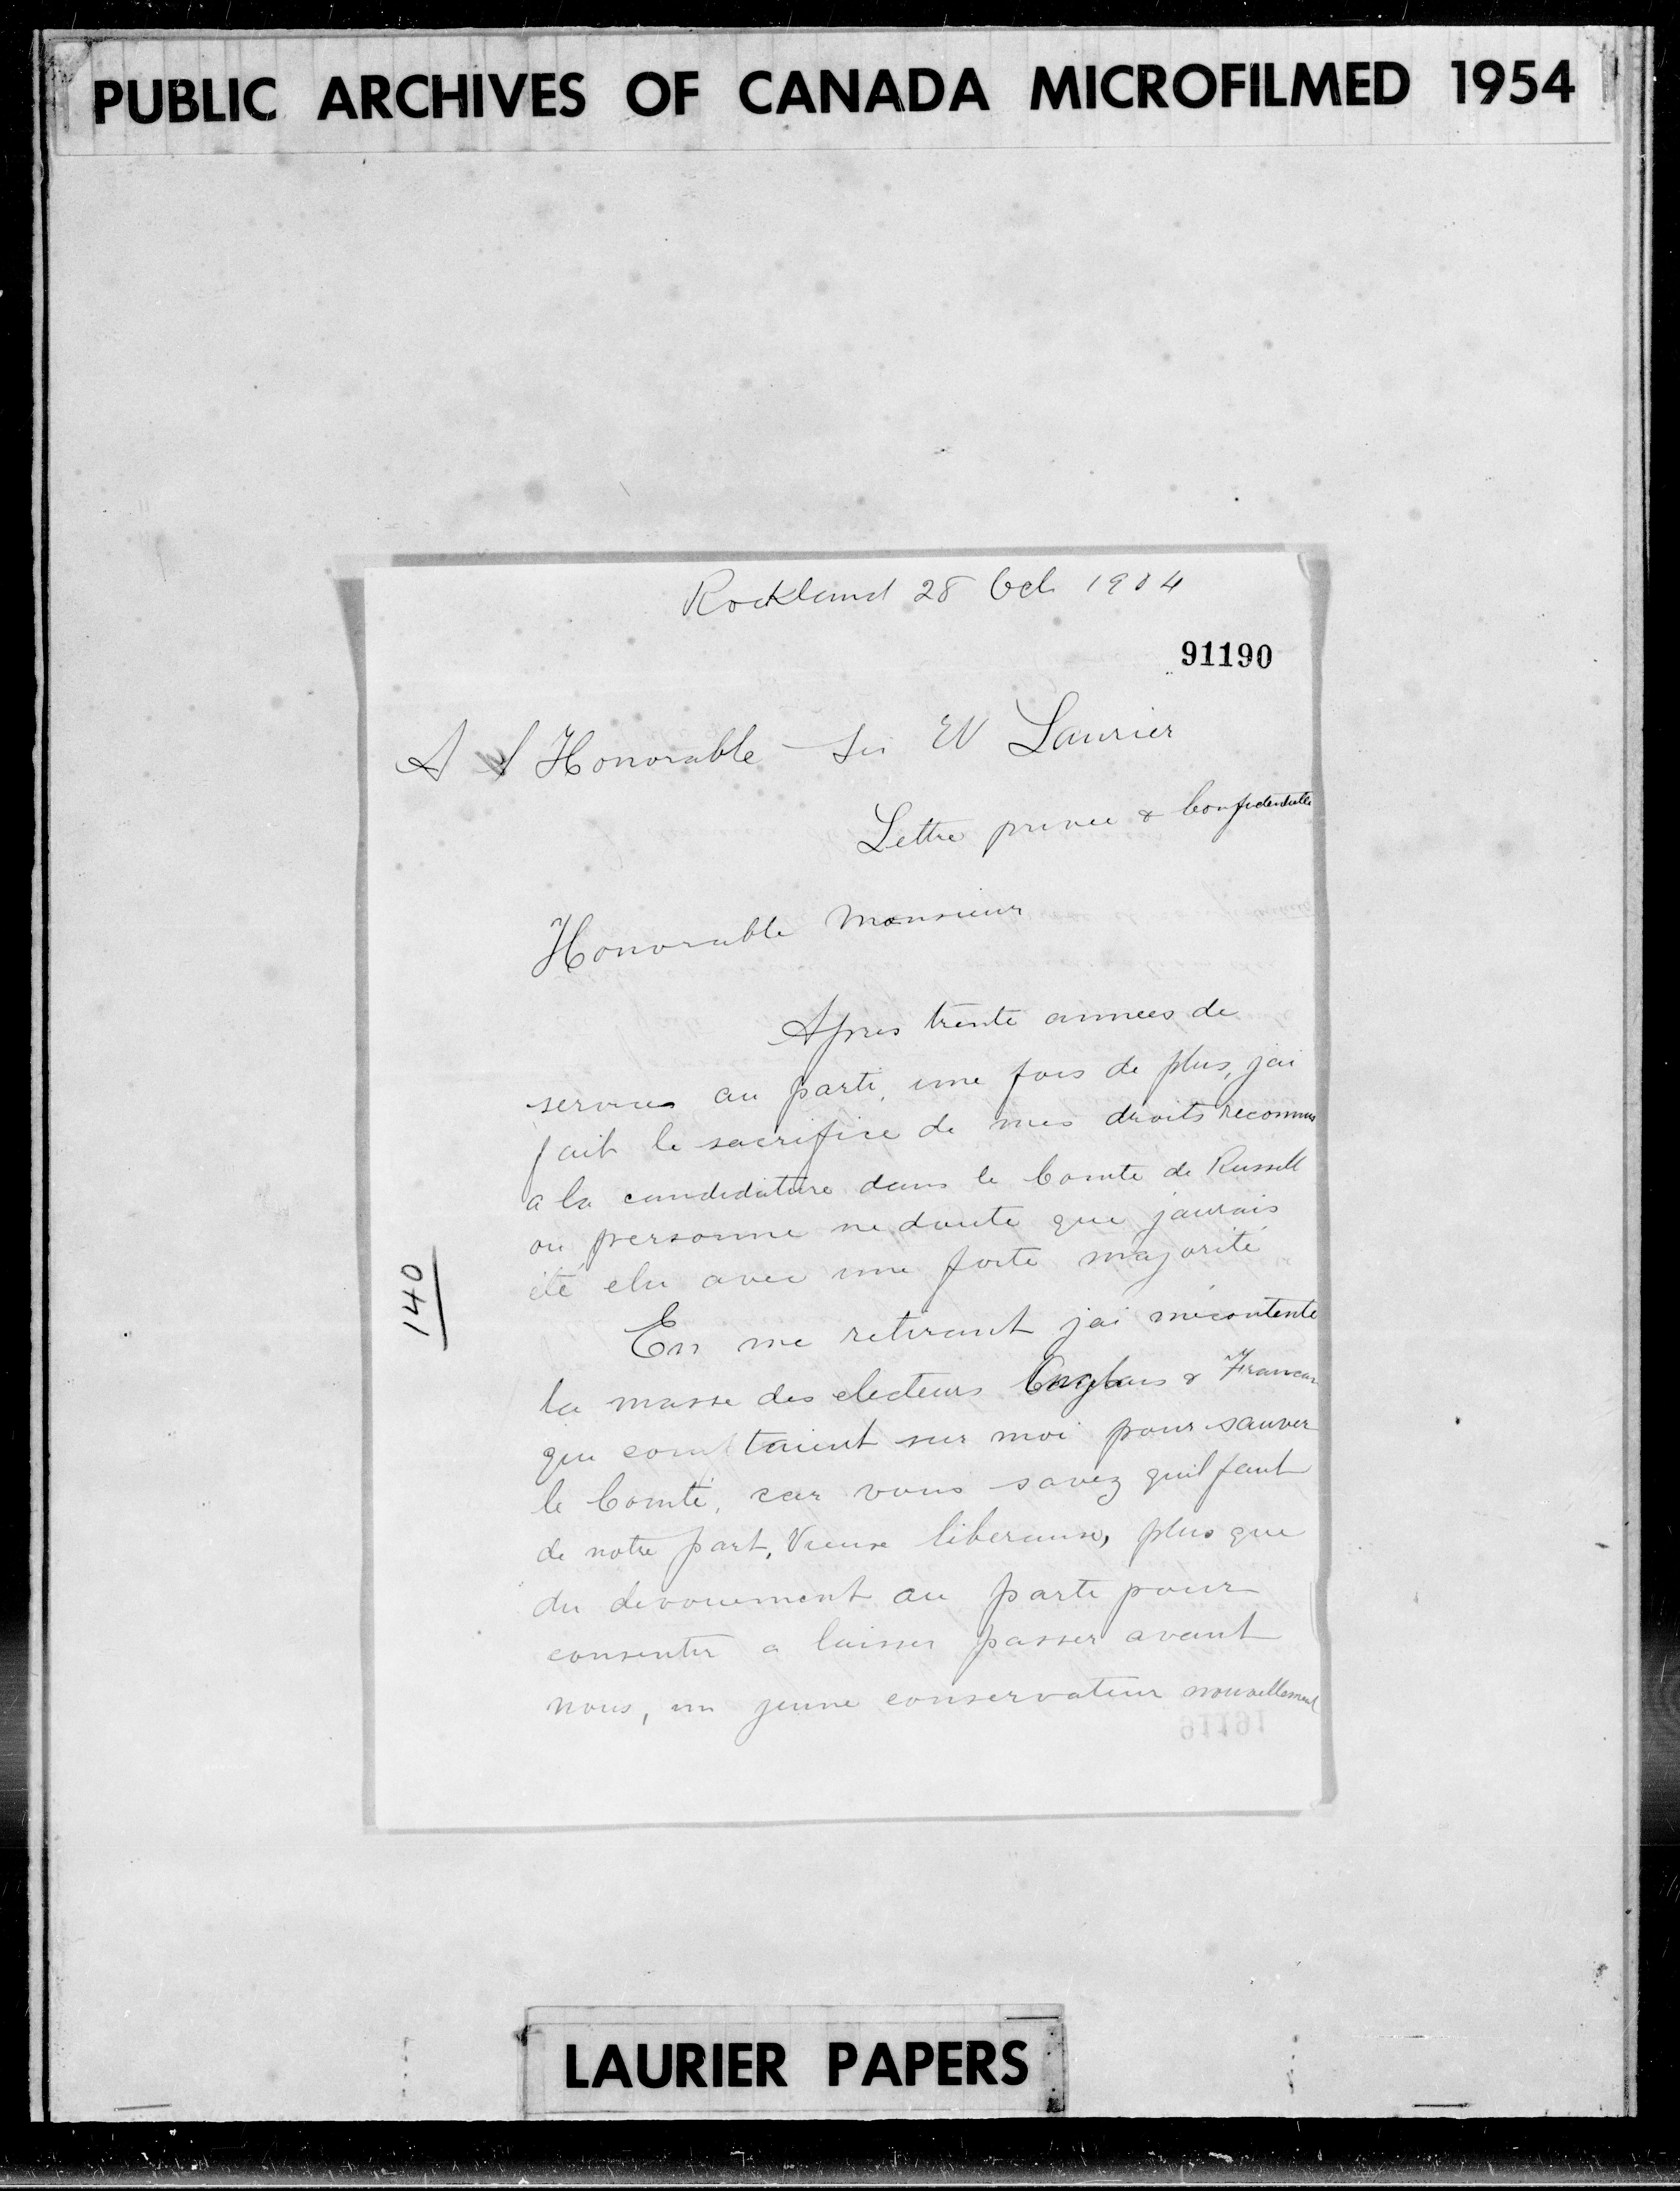 PUBLIC ARCHIVES OF CANADA MICROFILMED 1954
Rockland 28 Oct 1904
91190
A l Honorable Sir W Laurier
Lettre privee & Confidentielle
Honorable Monsieur
Apres trente annees de
services au parti, une fois de plus, jai
fait le sacrifice de mes droits reconnus
a la candidature dans le Comte de Russell
ou personne ne doute que jaurais
été elu avec une forte majorité
140
En me retirant jai mecontente
la masse des electeurs Anglais & Francais
qui comptaient sur moi pour sauver
le Comté, car vous savez quil faut
de notre part, Vieux liberaux, plus que
du devouement au parti pour
consentir a laisser passer avant
nous, un jeune conservateur nouvellement
91191
LAURIER PAPERS